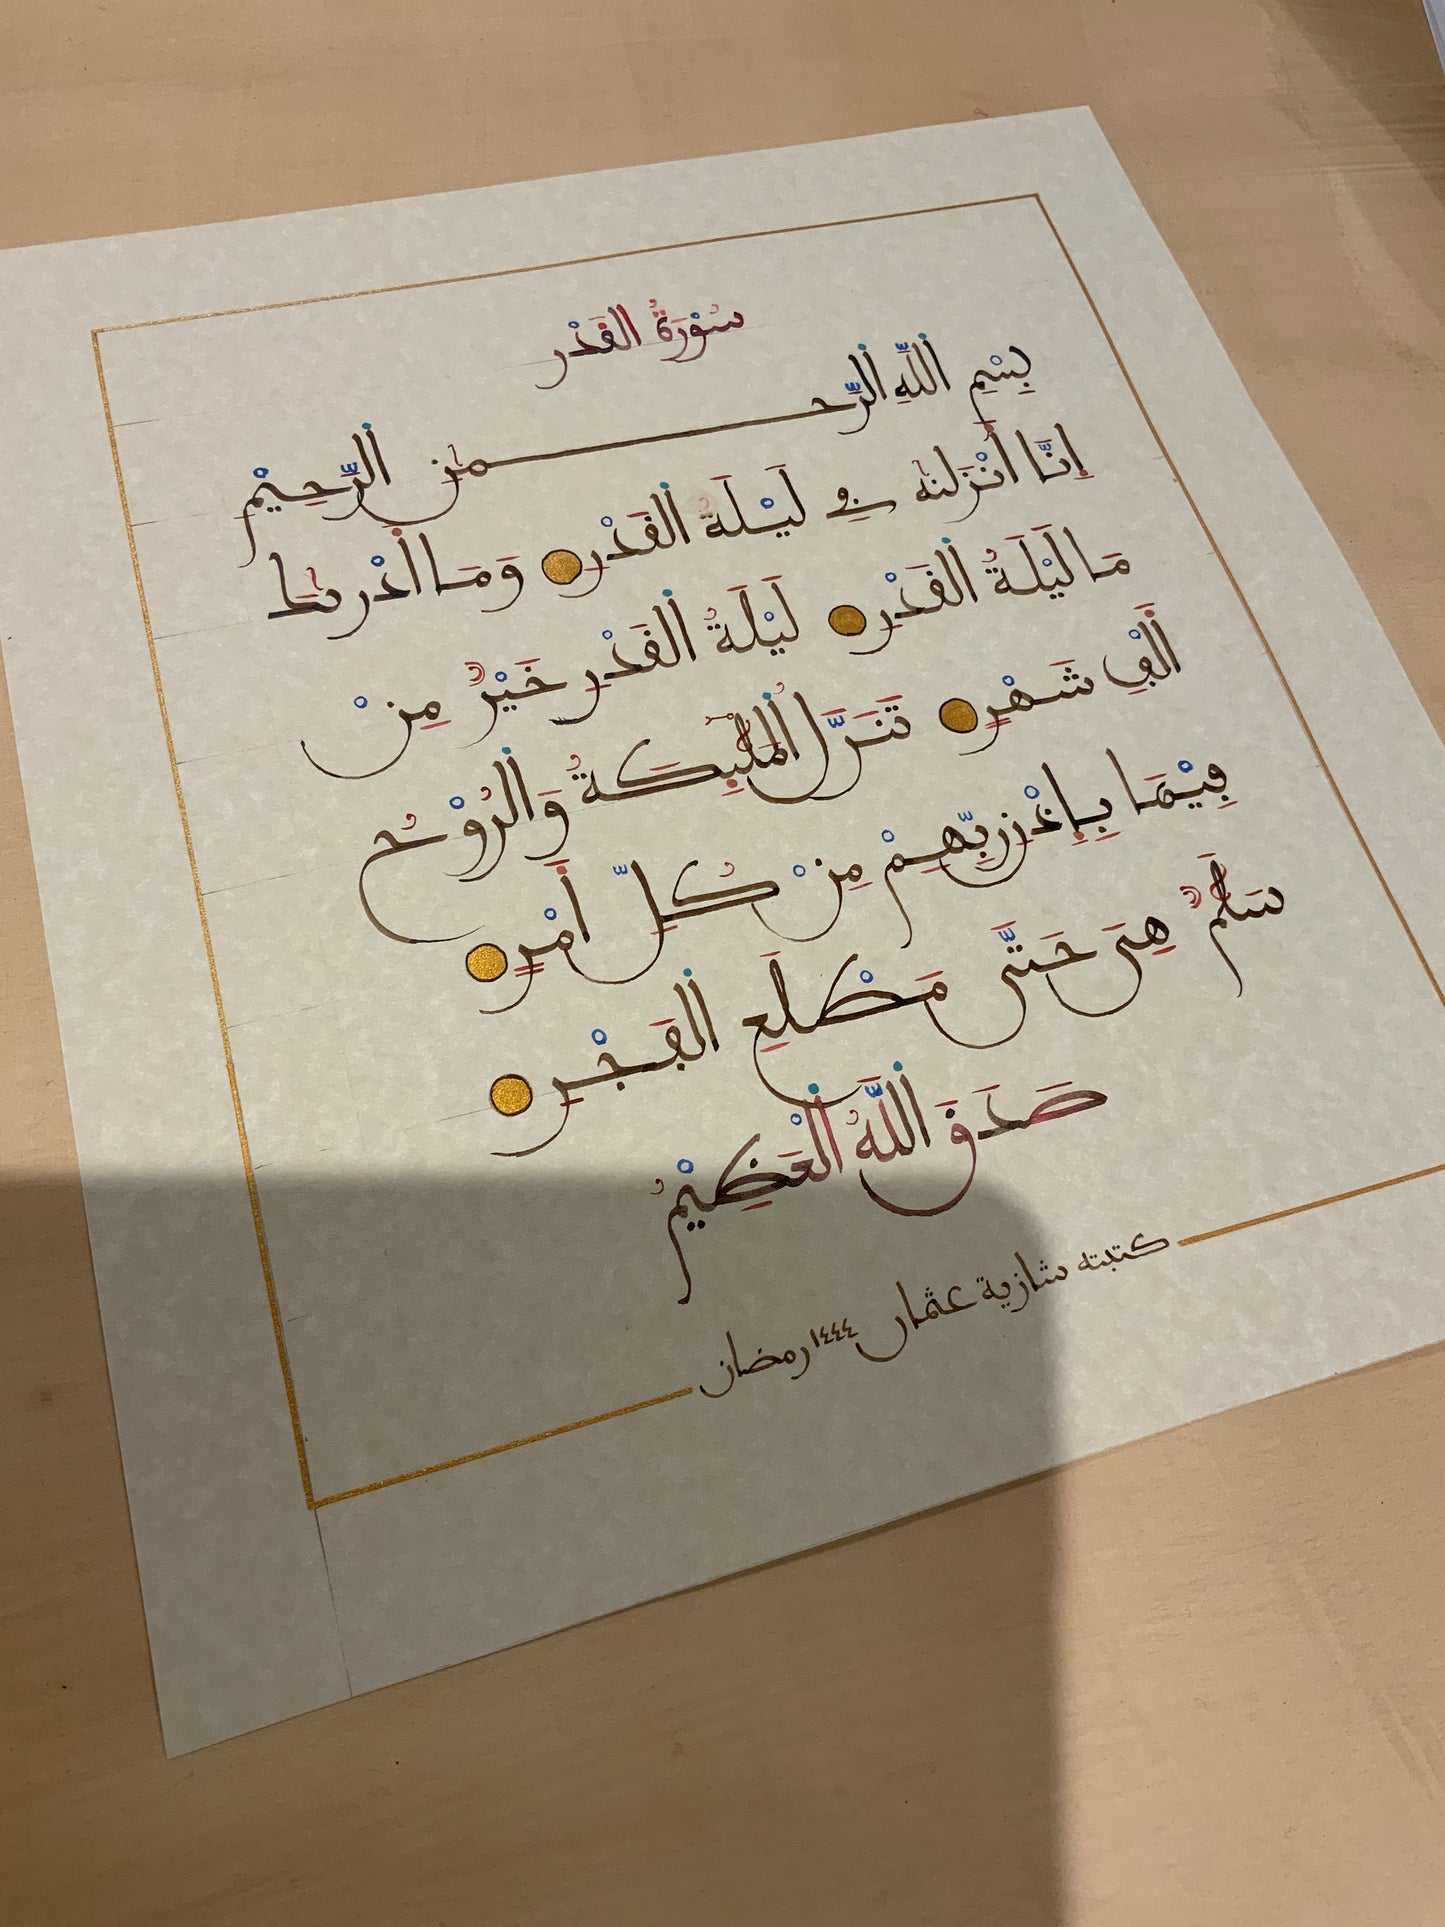 سُوْرَةُ الْقَدْرِ
بِسْمِ اللَّهِ الرَّحمٰنِ الرَّحِيْمِ
إِنَّا أَنْزَلْنٰهُ فِي لَيْلَةِ الْقَدْرِ وَمَا أَدْرٰىكَ
مَا لَيْلَةُ الْقَدْرِ لَيْلَةُ الْقَدْرِ خَيْرٌ مِنْ
أَلْفِ شَهْرٍ تَنَزَّلُ الْمَلٰٓئِكَةُ وَالرُّوْحُ
فِيْهَا بِإِذْنِ رَبِّهِمْ مِنْ كُلِّ أَمْرٍ
سَلٰمٌ هِيَ حَتَّى مَطْلَعِ الْفَجْرِ
صَدَقَ اللَّهُ الْعَظِيْمُ
كتبته شازية عثمان ١٤٤٤ رمضان